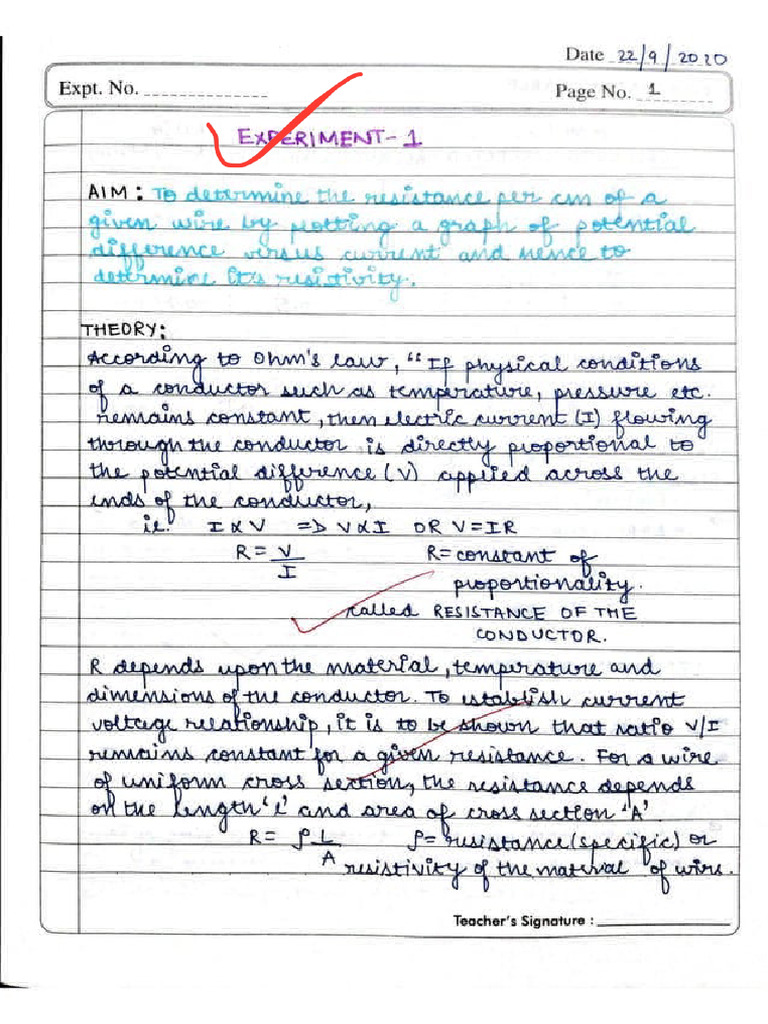 Date 22/9/2020
Expt. No.
Page No. 1
EXPERIMENT-1
AIM: To determine the resistance per cm of a
given wire by plotting a graph of potential
difference versus current and hence to
determine it's resistivity.
THEORY:
According to Ohm's law, "If physical conditions
of a conductor such as temperature, pressure etc.
remains constant, then electric current (I) flowing
through the conductor is directly proportional to
the potential difference (V) applied across the
ends of the conductor,
ie. I ∝ V => V ∝ I OR V = IR
R = V/I R = constant of
proportionality.
called RESISTANCE OF THE
CONDUCTOR.
R depends upon the material, temperature and
dimensions of the conductor. To establish current
voltage relationship, it is to be shown that ratio V/I
remains constant for a given resistance. For a wire
of uniform cross section, the resistance depends
on the length 'l' and area of cross section 'A'.
R = ρ L/A ρ = resistance (specific) or
resistivity of the material of wire.
Teacher's Signature :